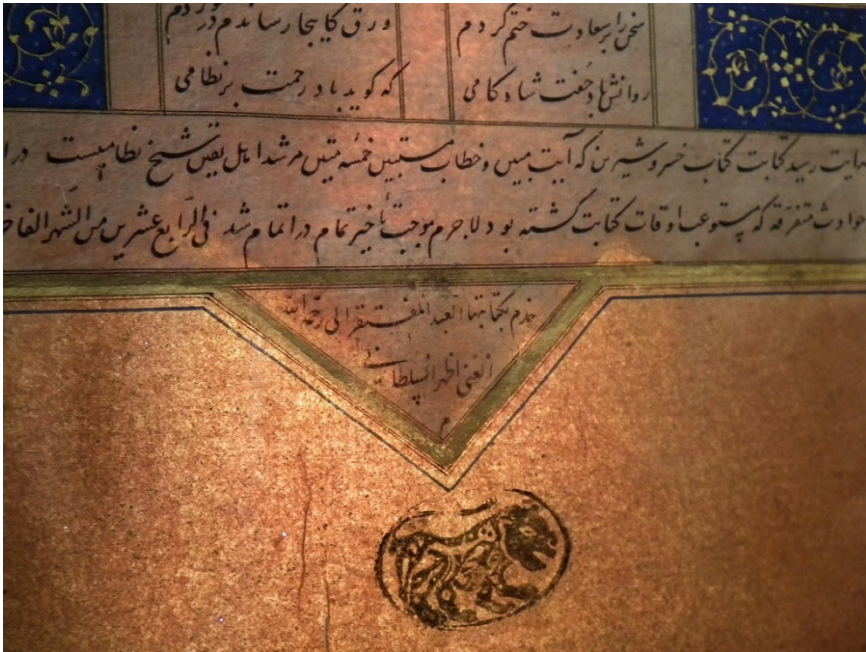 سخن را بر سعادت ختم کردم ورق کاینجا رساندم در
روانش باد جفت شادکامی که گوید باد رحمت بر نظامی
رسید کتابت کتاب خسرو شیرین که آیت مبین و خطاب مستبین خمسه متین مرشد اهل یقین شیخ نظامیست
حوادث متفرقه که مستوعب اوقات کتابت گشته بود لاجرم موجب تاخیر تمام در اتمام شد فی الرابع عشرین من الشهر
خدم بکتابتها العبد المفتقر الی رحمة الله
الغنی اظهر السلطانی
م